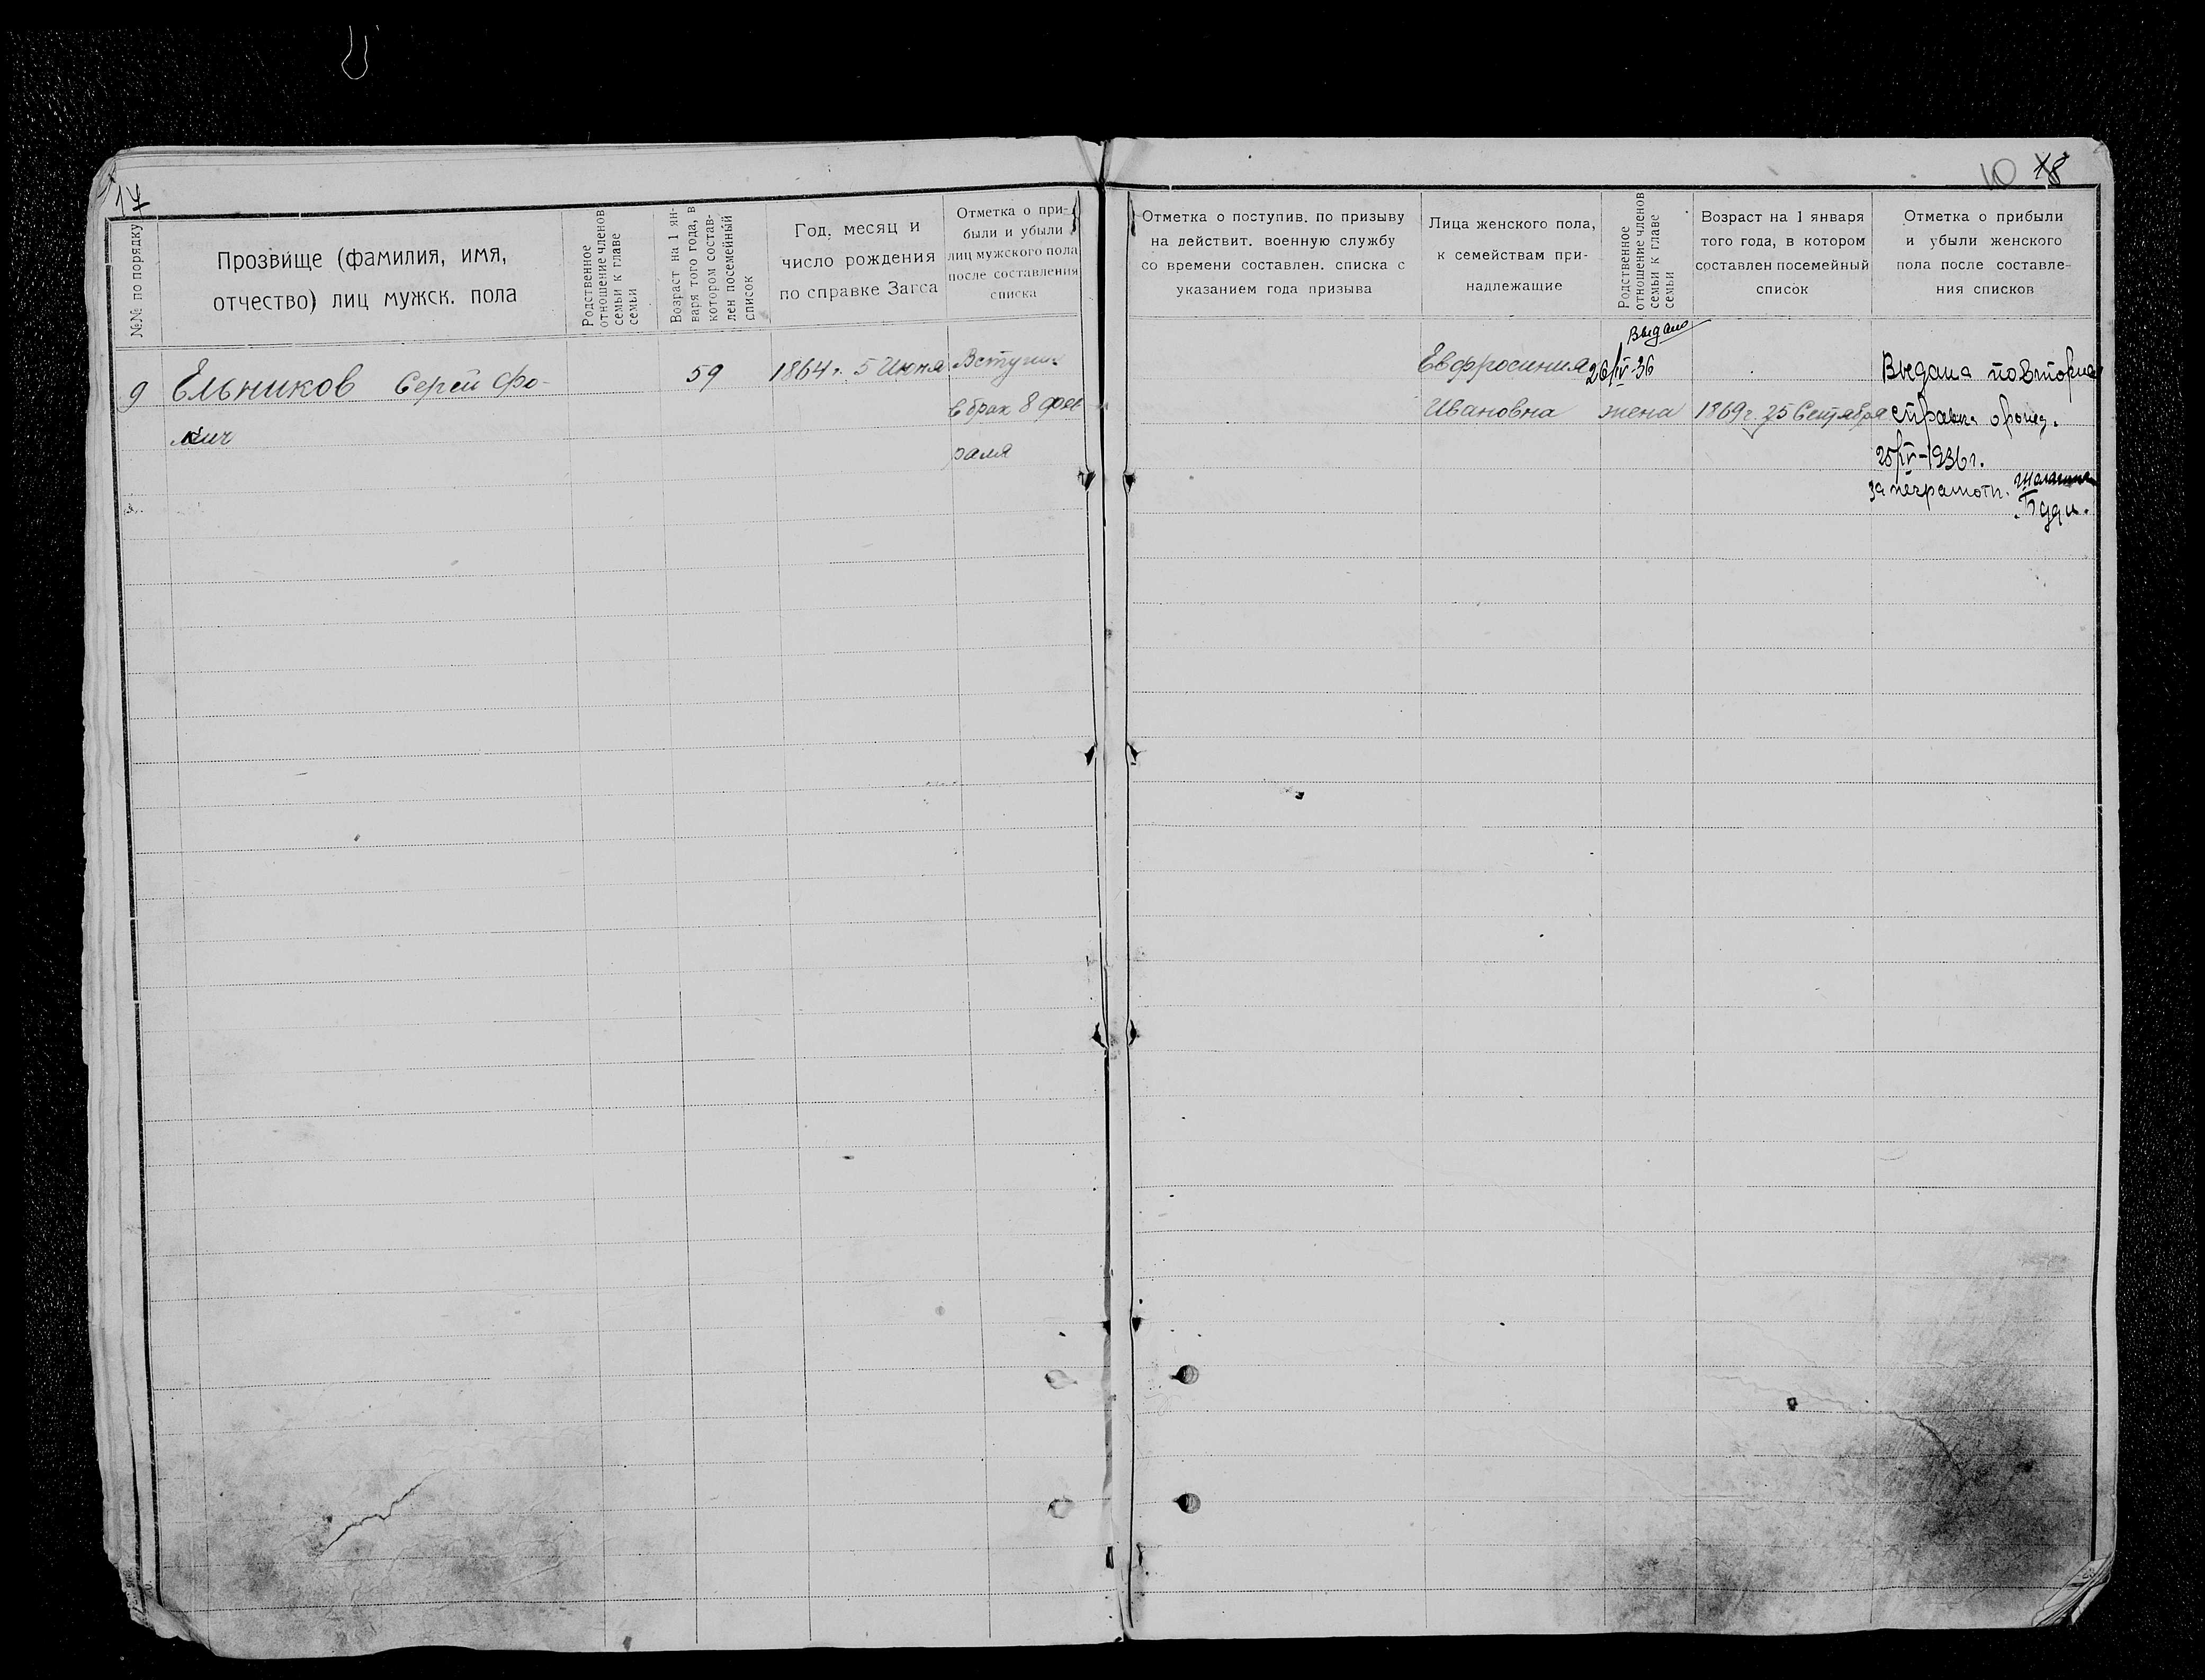 17
№№ по порядку
Прозвище (фамилия, имя,
отчество) лиц мужск. пола
Родственное
отношение членов
семьи к главе
семьи
Возраст на 1 ян-
варя того года, в
котором состав-
лен посемейный
список
Год, месяц и
число рождения
по справке Загса
Отметка о при-
были и убыли
лиц мужского пола
после составления
списка
9 Ельников Серей Фо-
мич
59
1864 г. 5 Июня
Вступил
в брак 8 фев
раля
10 18
Отметка о поступив. по призыву
на действит. военную службу
со времени составлен. списка с
указанием года призыва
Лица женского пола,
к семействам при-
надлежащие
Родственное
отношение членов
семьи к главе
семьи
Возраст на 1 января
того года, в котором
составлен посемейный
список
Отметка о прибыли
и убыли женского
пола после составле-
ния списков
Евфросиния
Ивановна
Выдано
26/IV-36
жена
1869 г. 25 Сентября
Выдана повторная
справка о рожд.
25/IV-1936 г.
за неграмотн.